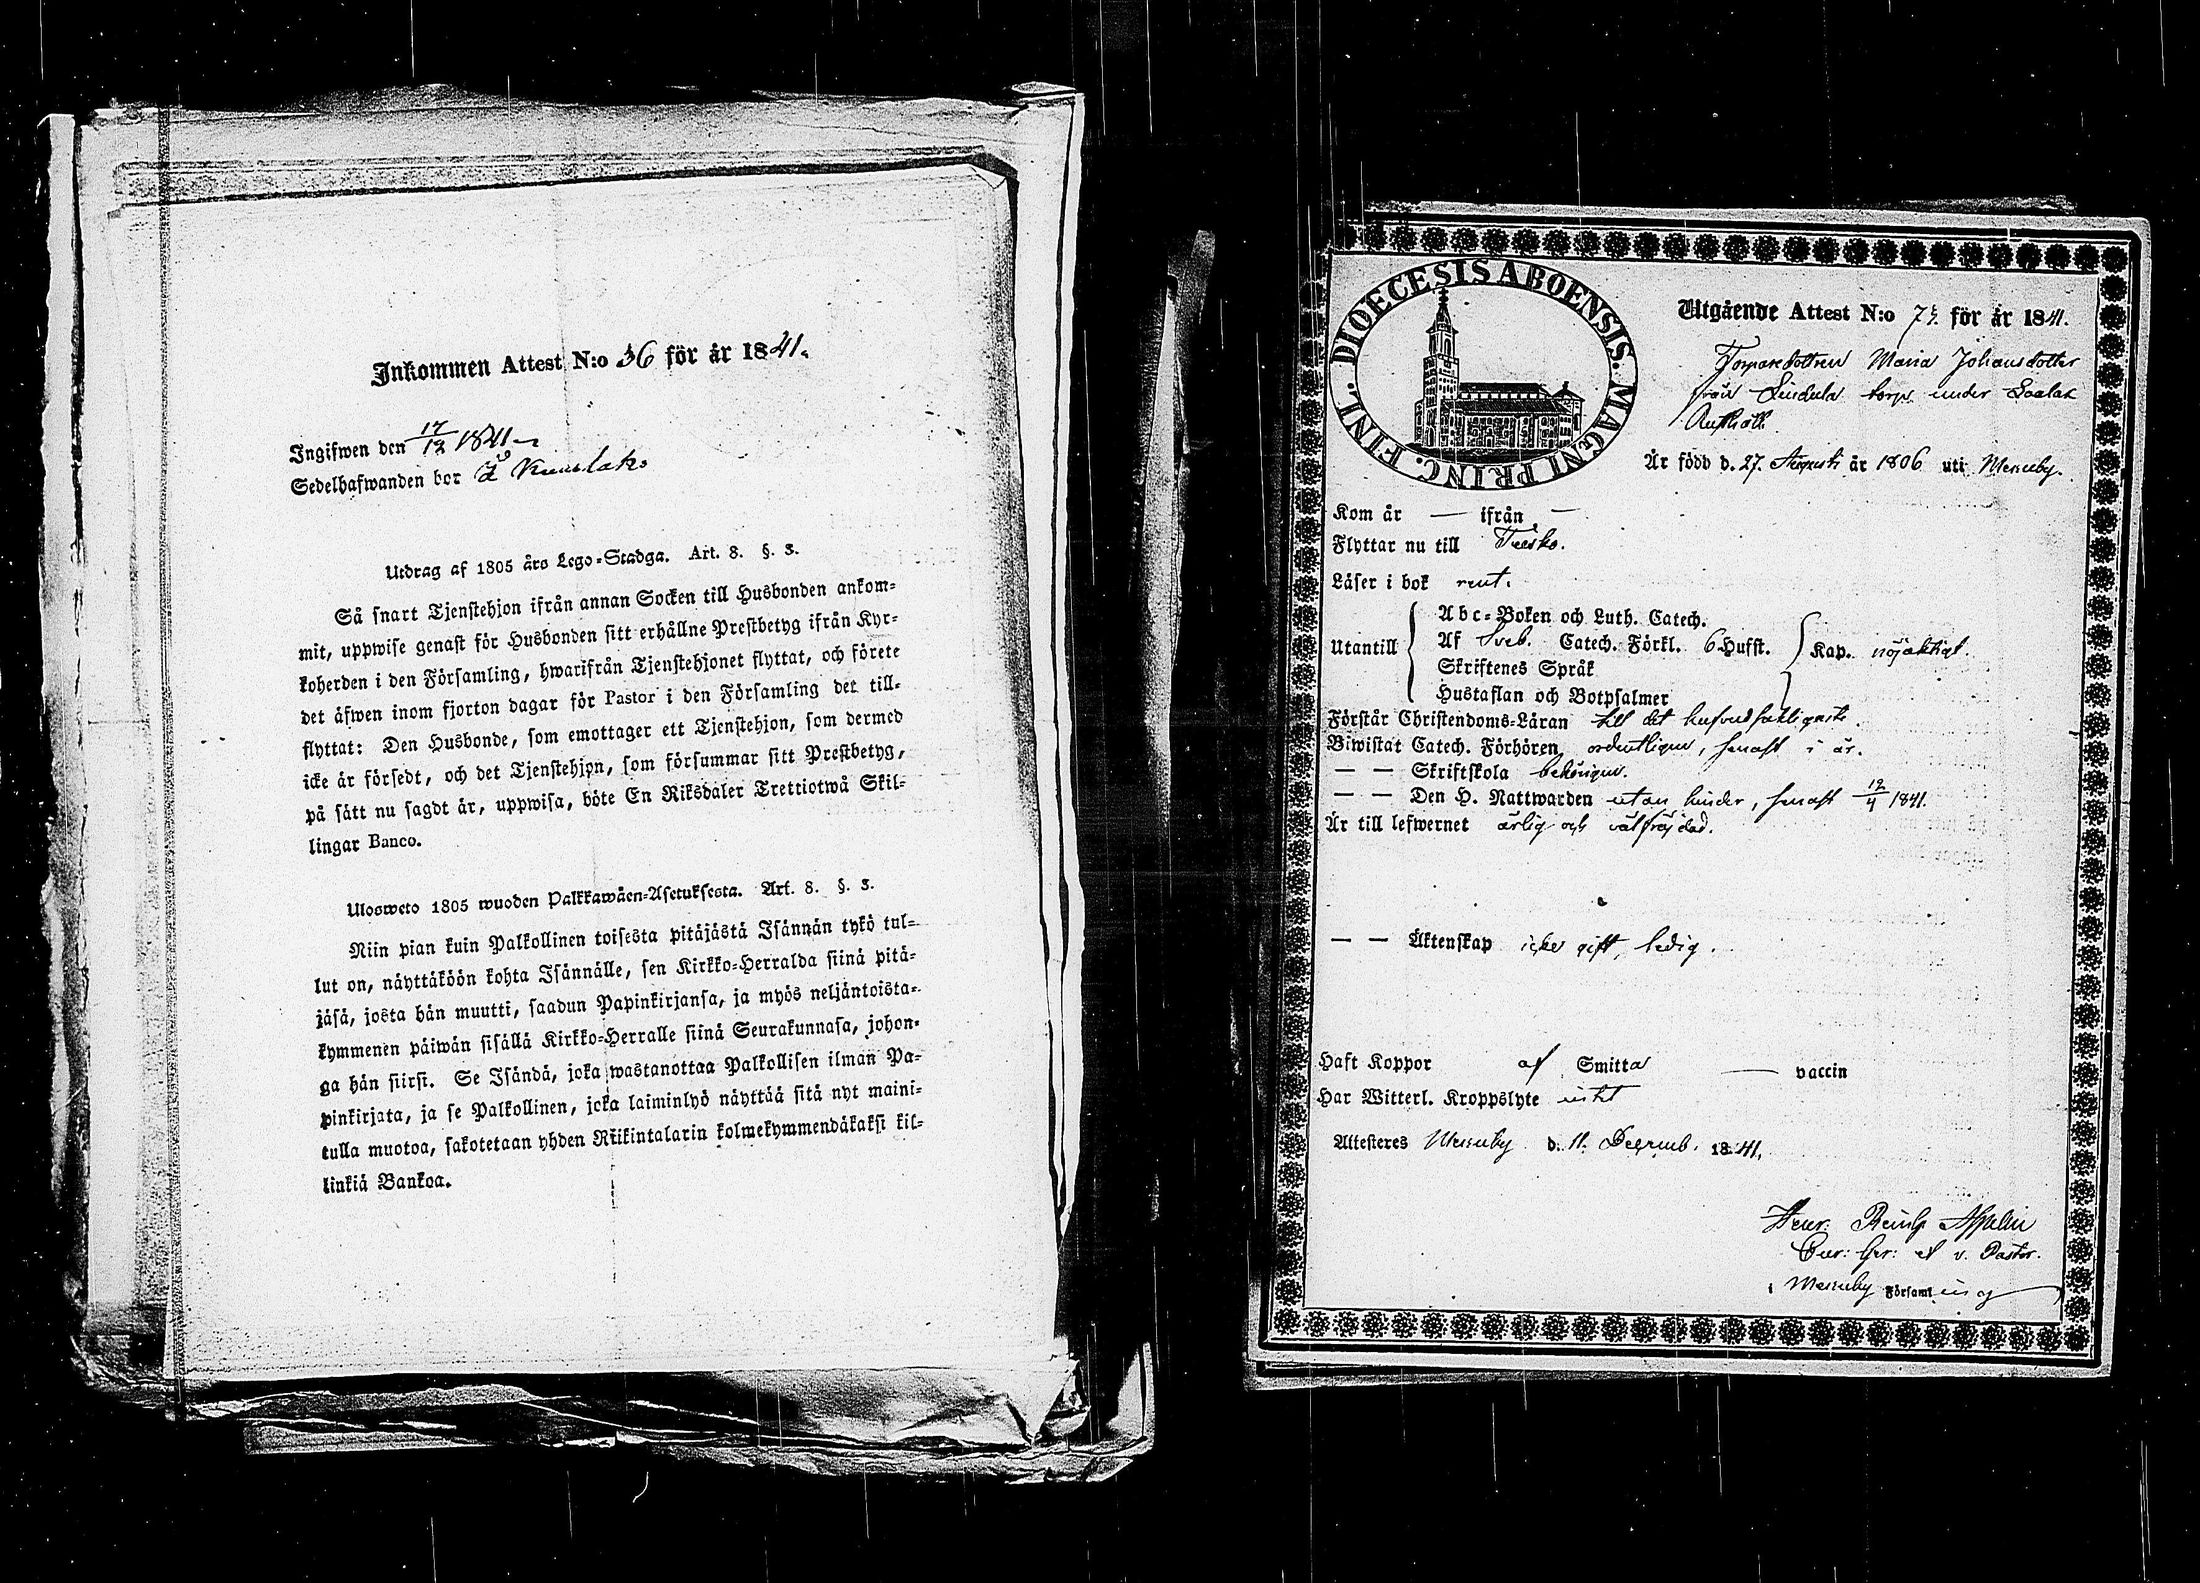 Inkommen Attest N:o 36 för år 1841.
Ingifwen den 17/12 1841
Sedelhafwanden bor
Utdrag af 1805 års Lego-Stadga. Art. 8. §. 3.
Så snart Tjenstehjon ifrån annan Socken till Husbonden ankom-
mit, uppwise genast för Husbonden sitt erhållne Prestbetyg ifrån Kyr-
koherden i den Församling, hwarifrån Tjenstehjonet flyttat, och förete
det äfwen inom fjorton dagar för Pastor i den Församling det till-
flyttat: Den Husbonde, som emottager ett Tjenstehjon, som dermed
icke är försedt, och det Tjenstehjon, som försummar sitt Prestbetyg,
på sätt nu sagdt är, uppwisa, böte En Riksdaler Trettiotwå Skil-
lingar Banco.
Ulosweto 1805 wuoden Palkkawäen-Asetuksesta. Art. 8. §. 3.
Niin pian kuin Palkollinen toisesta pitäjästä Isännän tykö tul-
lut on, näyttäköön kohta Isännälle, sen Kirkko-Herralda siinä pitä-
jäsä, josta hän muutti, saadun Papinkirjansa, ja myös neljäntoista-
kymmenen päiwän sisällä Kirkko-Herralle siinä Seurakunnasa, johon-
ga hän siirsi. Se Isändä, joka wastanottaa Palkollisen ilman Pa-
pinkirjata, ja se Palkollinen, joka laiminlyö näyttää sitä nyt maini-
tulla muotoa, sakotetaan yhden Riikintalarin kolmekymmendäkaksi kil-
linkiä Bankoa.
DIOECESIS ABOENSIS. MAGNI PRINC. FINL.
Utgående Attest N:o för år 1841.
Torparedottren Maria Johansdotter
från torp under
Är född d. 27. Augusti år 1806 uti Messuby.
Kom år — ifrån —
Flyttar nu till
Läser i bok rent.
Utantill
Abc-Boken och Luth. Catech.
Af Sveb. Catech. Förkl. 6 Hufst.
Skriftenes Språk
Hustaflan och Botpsalmer
Kap. nöjaktigt.
Förstår Christendoms-Läran till det hufvudsakligaste.
Biwistat Catech. Förhören ordentligen, senast i år.
— — Skriftskola behörigen.
— — Den H. Nattwarden utan hinder, senast 12/4 1841.
Är till lefwernet ärlig och välfrejdad.
— — Äktenskap icke gift, ledig.
Haft Koppor af Smitta — vaccin
Har Witterl. Kroppslyte intet
Attesteres Messuby d. 11. Decemb. 1841.
Henr: Reinh: Appelin
v. Pastor.
i Messuby Församling